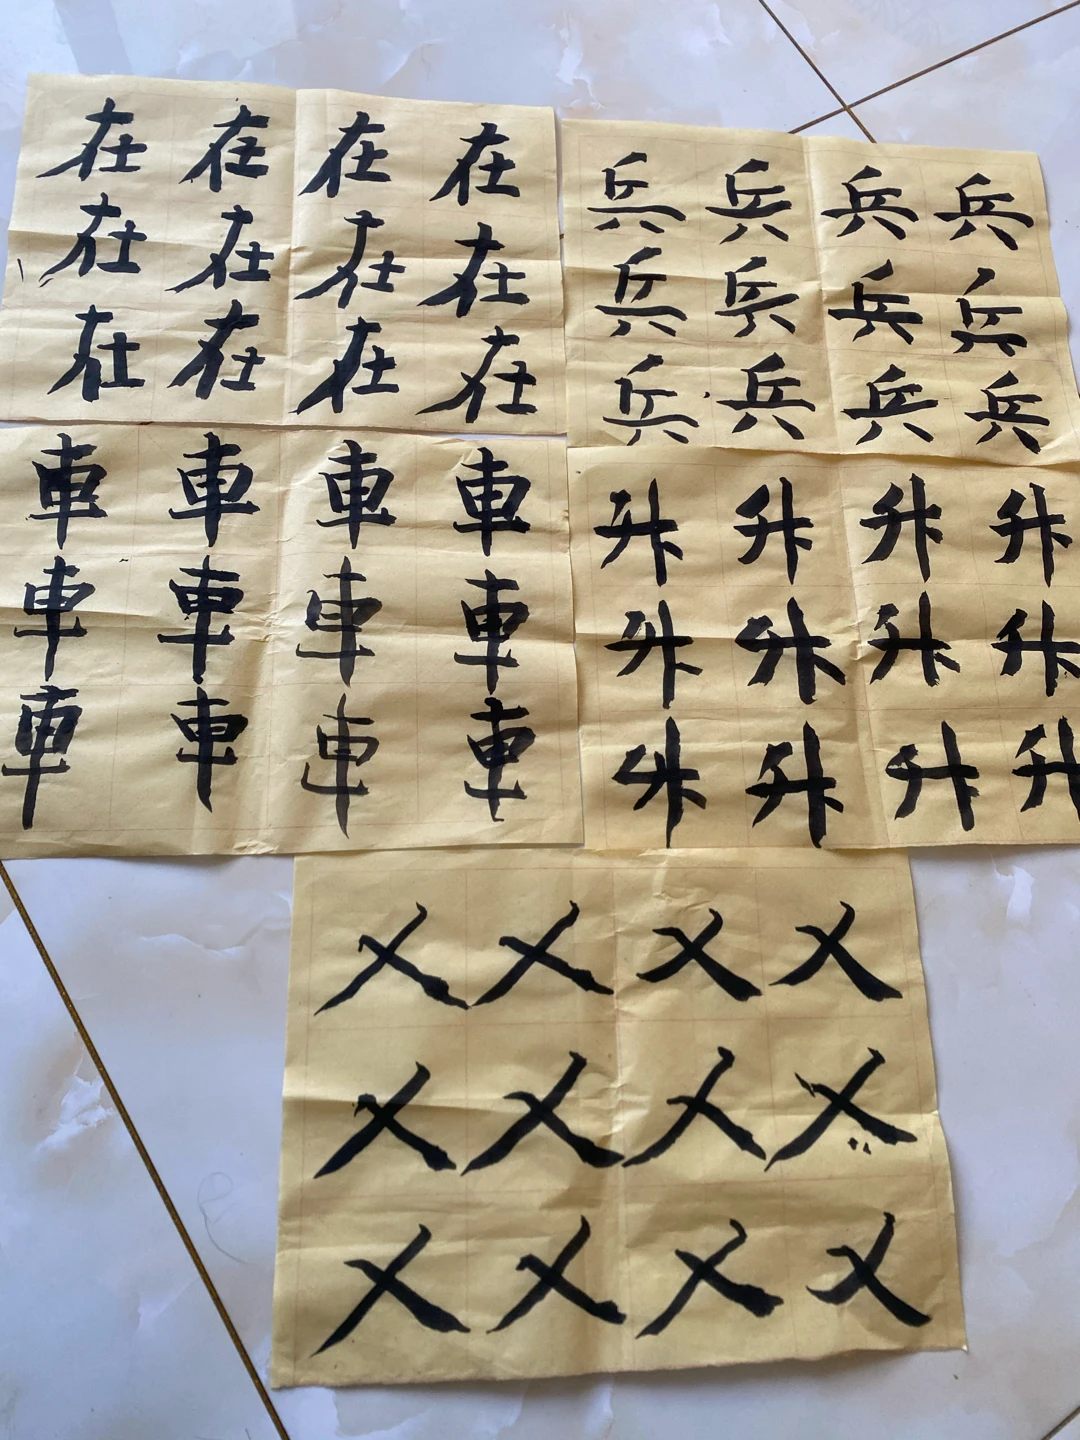 在在在在
在在在在
在在在在
兵兵兵兵
兵兵兵兵
兵兵兵兵
車車車車
車車車車
車車車車
升升升升
升升升升
升升升升
乂乂乂乂
乂乂乂乂
乂乂乂乂